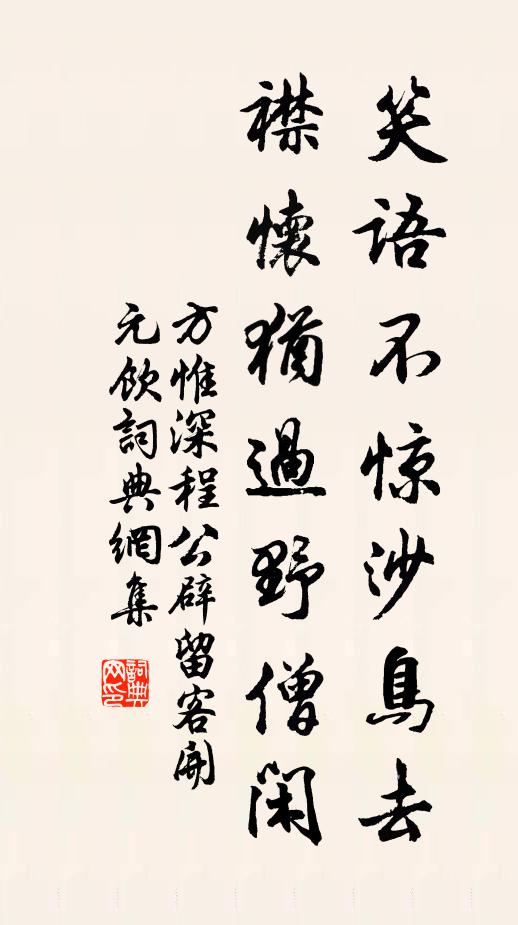 笑語不惊沙鳥去
襟懷猶過野僧閑
方惟深程公辟留客開
元飲詞典網集
詞典
网印